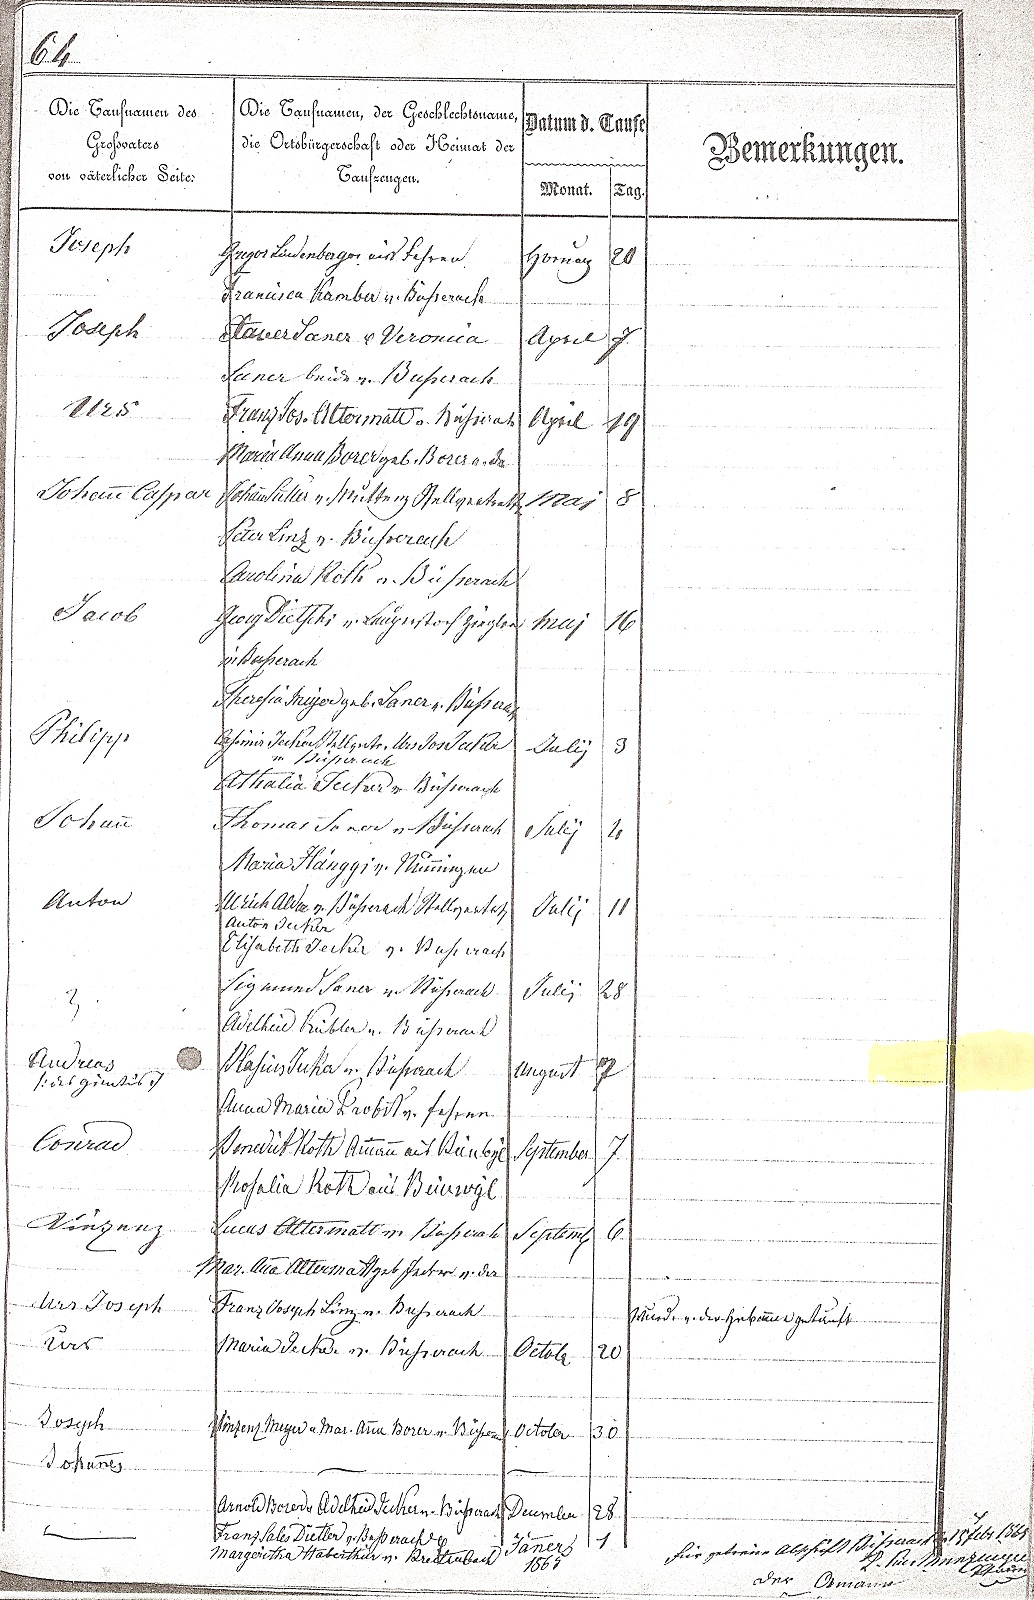 64
Die Taufnamen des
Grossvaters
von väterlicher Seite:
Die Taufnamen, der Geschlechtsname,
die Ortsbürgerschaft oder Heimat der
Taufzeugen.
Datum d. Taufe
Monat. Tag.
Bemerkungen.
Joseph Gregor Lindenberger aus Fehren Hornung 20
Francisca Kamber v. Büsserach
Joseph Xaver Saner & Veronica April 7
Saner beide v. Büsserach
Urs Franz Jos. Altermatt v. Büsserach April 19
Maria Anna Borer geb. Borer v. da
Johañ Caspar Johañ v. Muttenz Stellvertreter Maj 8
Peter Linz v. Büsserach
Carolina Roth v. Büsserach
Jacob Georg Dietschi v. Ziegler Maj 16
in Büsserach
Theresia Meyer geb. Saner v. Büsserach
Philipp Casimir Jecker Stellvertr. Urs Jos Jecker Julij 3
v. Büsserach
Athalia Jecker v. Büsserach
Johañ Thomas Saner v. Büsserach Julij
Maria Hänggi v. Nuñingen
Anton Ulrich v. Büsserach Stellvertret. Julij 11
Anton Jecker
Elisabeth Jecker v. Büsserach
Sigmund Saner v. Büsserach Julij 28
Adelheid Kübler v. Büsserach
Andreas Blasius Jecker v. Büsserach August
Anna Maria Probst v. Fehren
Conrad Benedict Roth Amañ aus September 7
Rosalia Roth aus Beinwyl
Vinzenz Lucas Altermatt v. Büsserach Septemb 6
Mar. Aña Altermatt geb Jecker v. da
Urs Joseph Franz Joseph Linz v. Büsserach Wurd. v. der Hebamme getauft
Urs Maria Jecker v. Büsserach Octob 20
Joseph Vinzenz Meyer u Mar. Aña Borer v. Büsserach October 30
Johañes — —
Arnold Borer u Adelheid Jecker v. Büsserach December 28
— Franz Sales Dietler v. Büsserach & Jäners 1
Margaritha Haberthür v. Breitenbach 1865
Für getreue Abschrift Büsserach d 18 Febr 1865
Der Amann